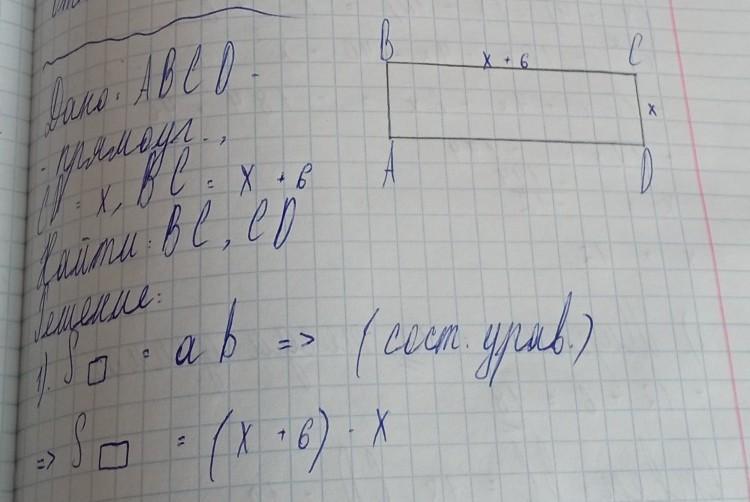 Дано: ABCD -
- прямоуг.,
CD = x, BC = x + 6
Найти: BC, CD
Решение:
1). S▭ = ab => (сост. урав.)
=> S▭ = (x + 6) · x
B
x + 6
C
x
A
D